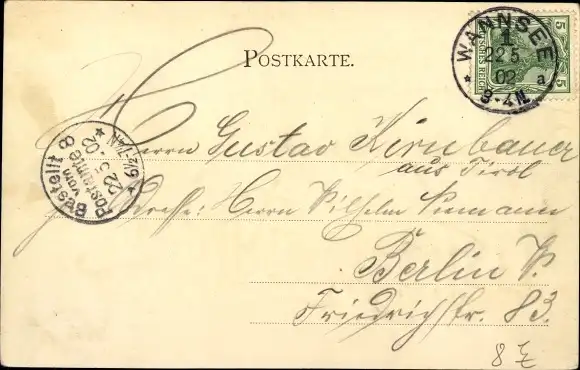 POSTKARTE.
WANNSEE
1
22 5
02
* a
3-4 N.
5 5
DEUTSCHES REICH
Bestellt
vom
Postamte 8
22.5.02
6 1/2-7 1/4 N
Herrn Gustav Kirnbauer
aus Tirol
Adresse: Herrn Wilhelm
Berlin W.
Friedrichstr. 83.
8